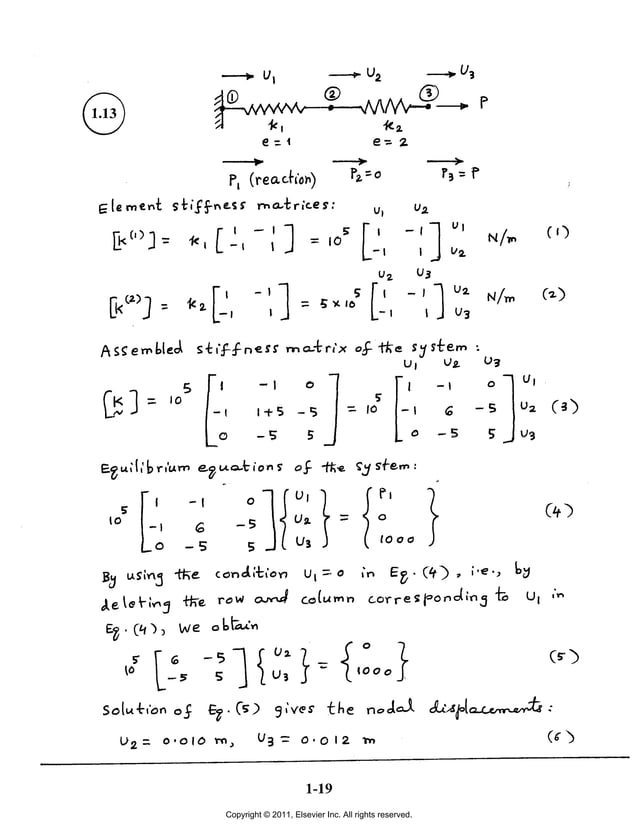 → U₁ → U₂ → U₃
1.13
① ② ③ → P
k₁ k₂
e = 1 e = 2
P₁ (reaction) P₂ = 0 P₃ = P
Element stiffness matrices:
U₁ U₂
[k⁽¹⁾] = k₁ [1 -1; -1 1] = 10⁵ [1 -1; -1 1] U₁ U₂ N/m (1)
U₂ U₃
[k⁽²⁾] = k₂ [1 -1; -1 1] = 5 × 10⁵ [1 -1; -1 1] U₂ U₃ N/m (2)
Assembled stiffness matrix of the system:
U₁ U₂ U₃
[K] = 10⁵ [1 -1 0; -1 1+5 -5; 0 -5 5] = 10⁵ [1 -1 0; -1 6 -5; 0 -5 5] U₁ U₂ U₃ (3)
Equilibrium equations of the system:
10⁵ [1 -1 0; -1 6 -5; 0 -5 5] {U₁; U₂; U₃} = {P₁; 0; 1000} (4)
By using the condition U₁ = 0 in Eq. (4), i.e., by
deleting the row and column corresponding to U₁ in
Eq. (4), we obtain
10⁵ [6 -5; -5 5] {U₂; U₃} = {0; 1000} (5)
Solution of Eq. (5) gives the nodal displacements:
U₂ = 0.010 m, U₃ = 0.012 m (6)
1-19
Copyright © 2011, Elsevier Inc. All rights reserved.